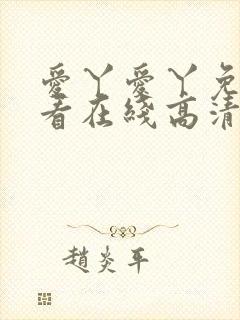 愛丫愛丫免
看在綫高清
趙炎平